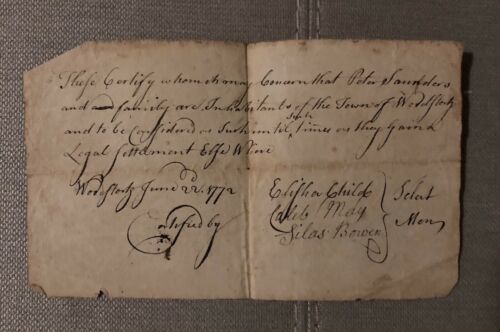 These Certify whome it may Concern that Peter Saunders
and family are Inhabitants of the Town of Woodstock
and to be Considerd as Such until Such times as they Gain a
Legal Settlement Else Where
Woodstock June 22d. 1772
Certified by
Elisha Child
Caleb May
Silas Bowen
Select
Men